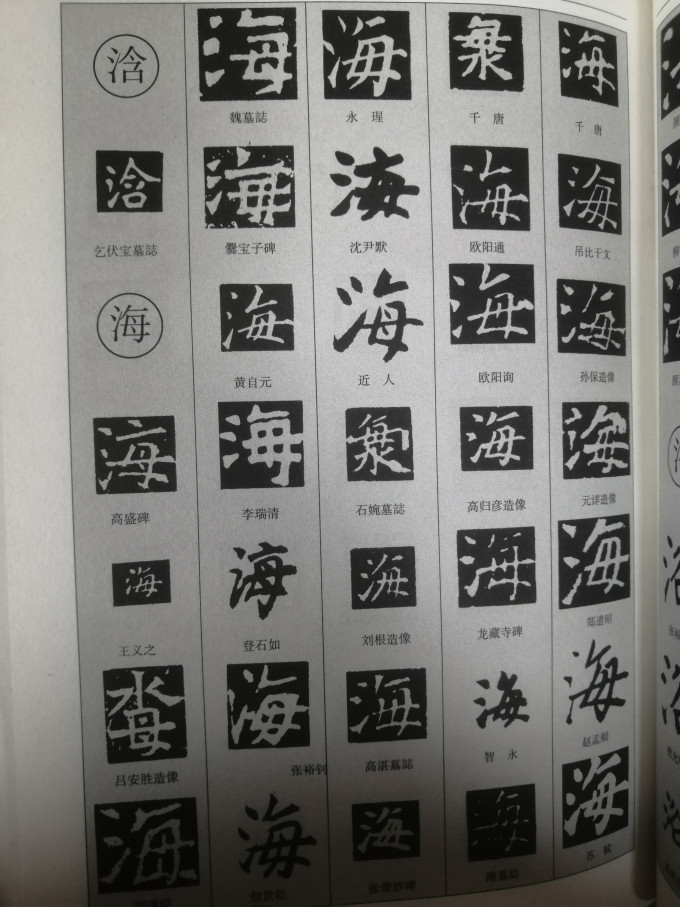 浛 海 海 海 海
魏墓誌 永 瑆 千 唐 千 唐
浛 海 海 海 海
乞伏宝墓誌 爨宝子碑 沈尹默 欧阳通 吊比干文
海 海 海 海 海
黄自元 近 人 欧阳询 孙保造像
海 海 海 海 海
高盛碑 李瑞清 石婉墓誌 高归彦造像 元详造像
海 海 海 海 海
王义之 登石如 刘根造像 龙藏寺碑 郑道昭
海 海 海 海 海
吕安胜造像 张裕钊 高湛墓誌 智 永 赵孟頫
海 海 海 海 海
包世臣 张僧妙碑 隋墓誌 苏 轼